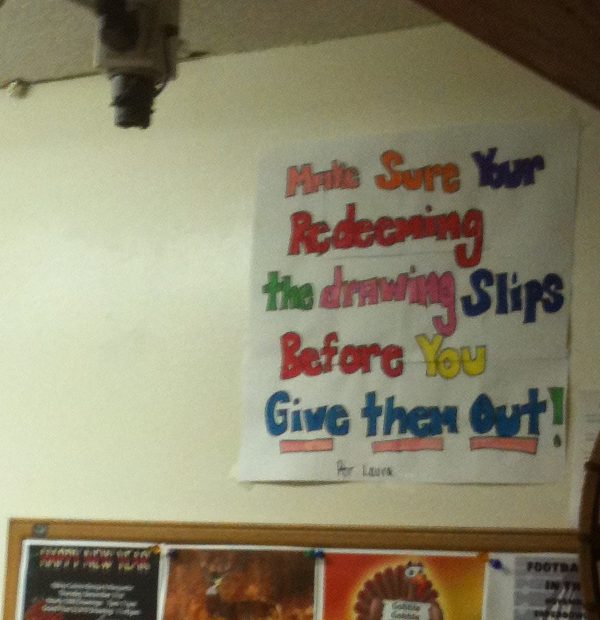 Make Sure Your
Redeeming
the drawing Slips
Before You
Give them Out!
Per Laura
HAPPY NEW YEAR!
Gobble
Gobble
FOOTBA
IN TH